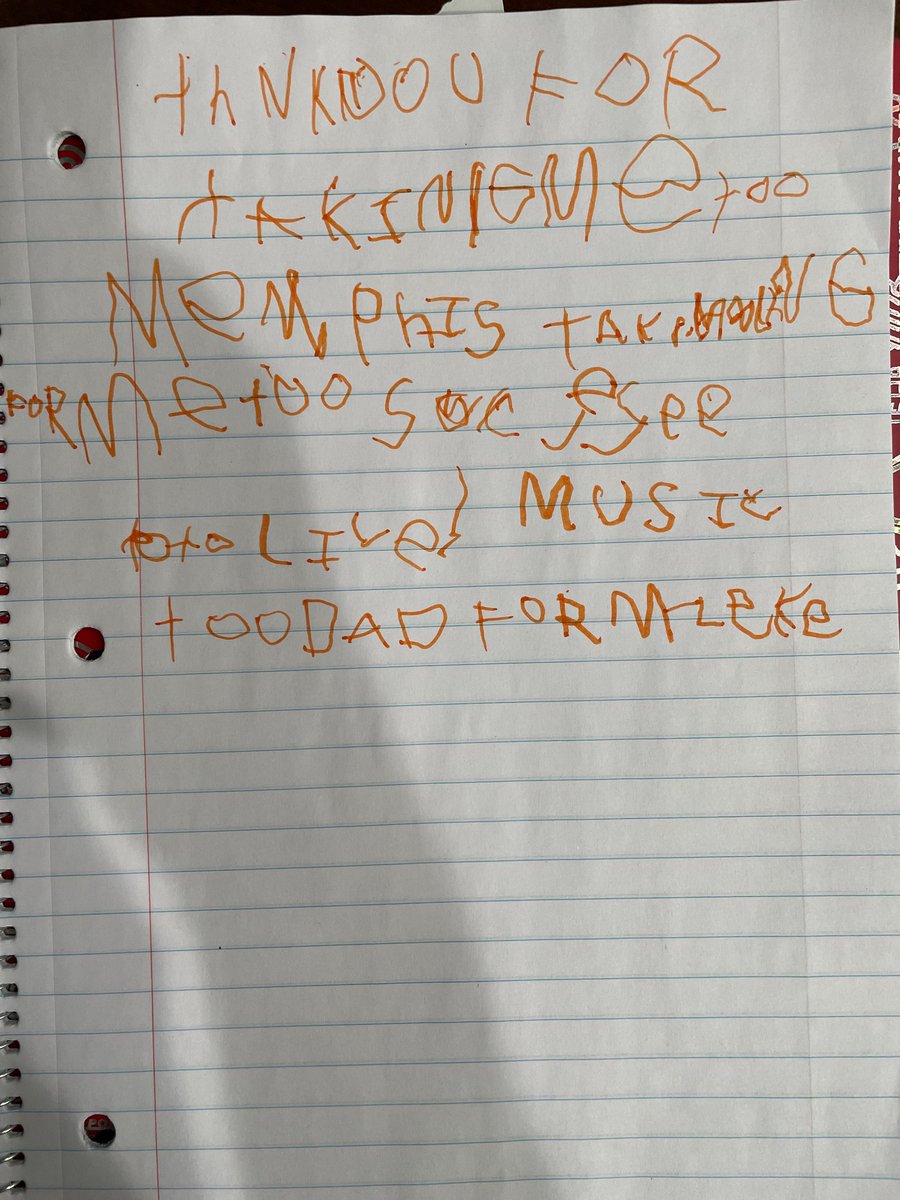 thNKDOU FOR
tAKINGMe too
MeMPhIS tAK NG
FOR Me too See
LIVe MUSIC
tOODAD FORM LEKE